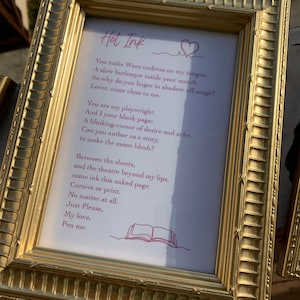 Hot Ink
You make Want undress on my tongue,
A slow burlesque inside your mouth,
So why do you linger in shadow off-stage?
Lover, come closer to me.
You are my playwright,
And I your blank page,
A blinking cursor of desire and ache.
Can you author us a story,
to make the moon blush?
Between the sheets,
and the theatre beyond my lips,
come ink this naked page.
Cursive or print,
No matter at all.
Just Please,
My love,
Pen me.